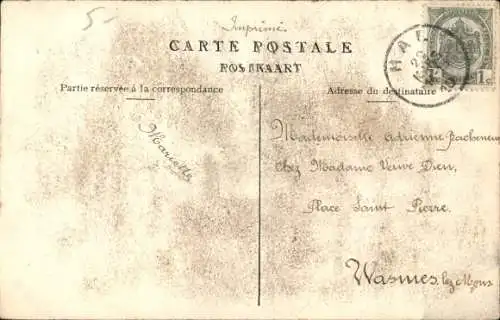 5-
Imprimé
CARTE POSTALE
POSTKAART
Partie réservée à la correspondance
Adresse du destinataire
Mariette
Mademoiselle Adrienne
Chez Madame Veuve Dieu,
Place Saint Pierre.
Wasmes lez Mons
HAL
1c